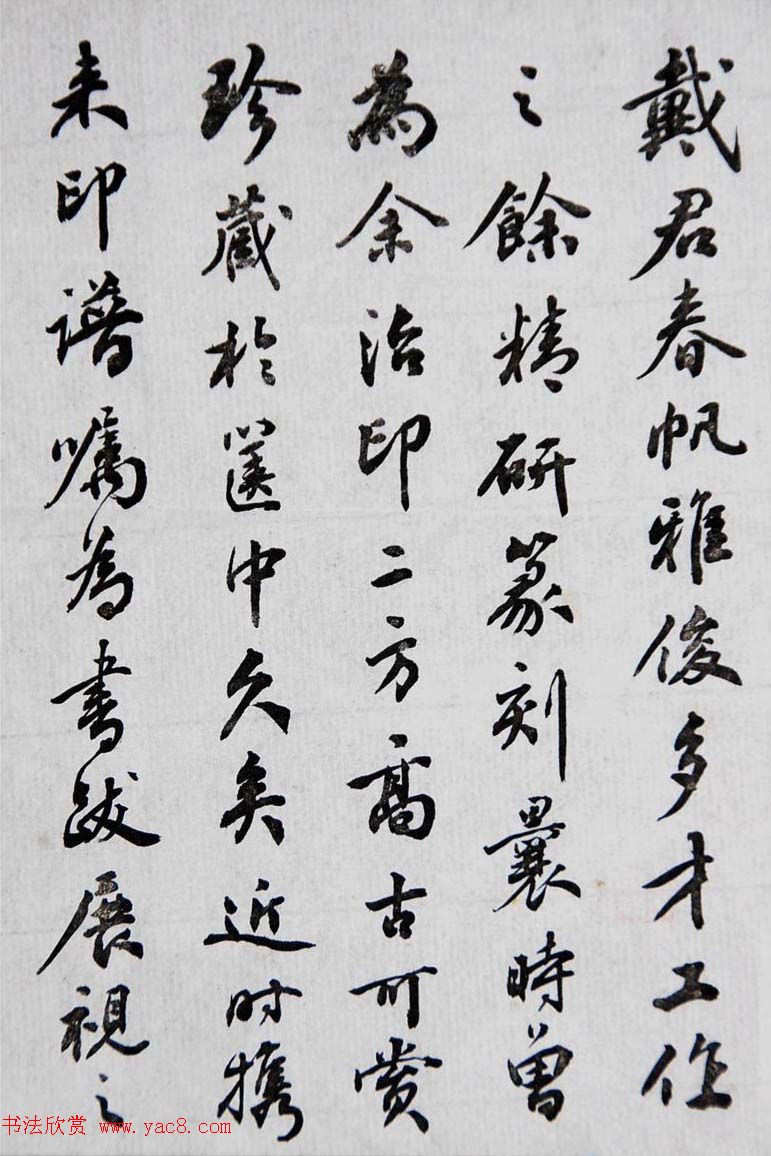 戴君春帆雅俊多才工作
之餘精研篆刻曩時曾
為余治印二方高古可赏
珍蔵於箧中久矣近时携
来印谱嘱为書跋展視之
书法欣赏 www.yac8.com